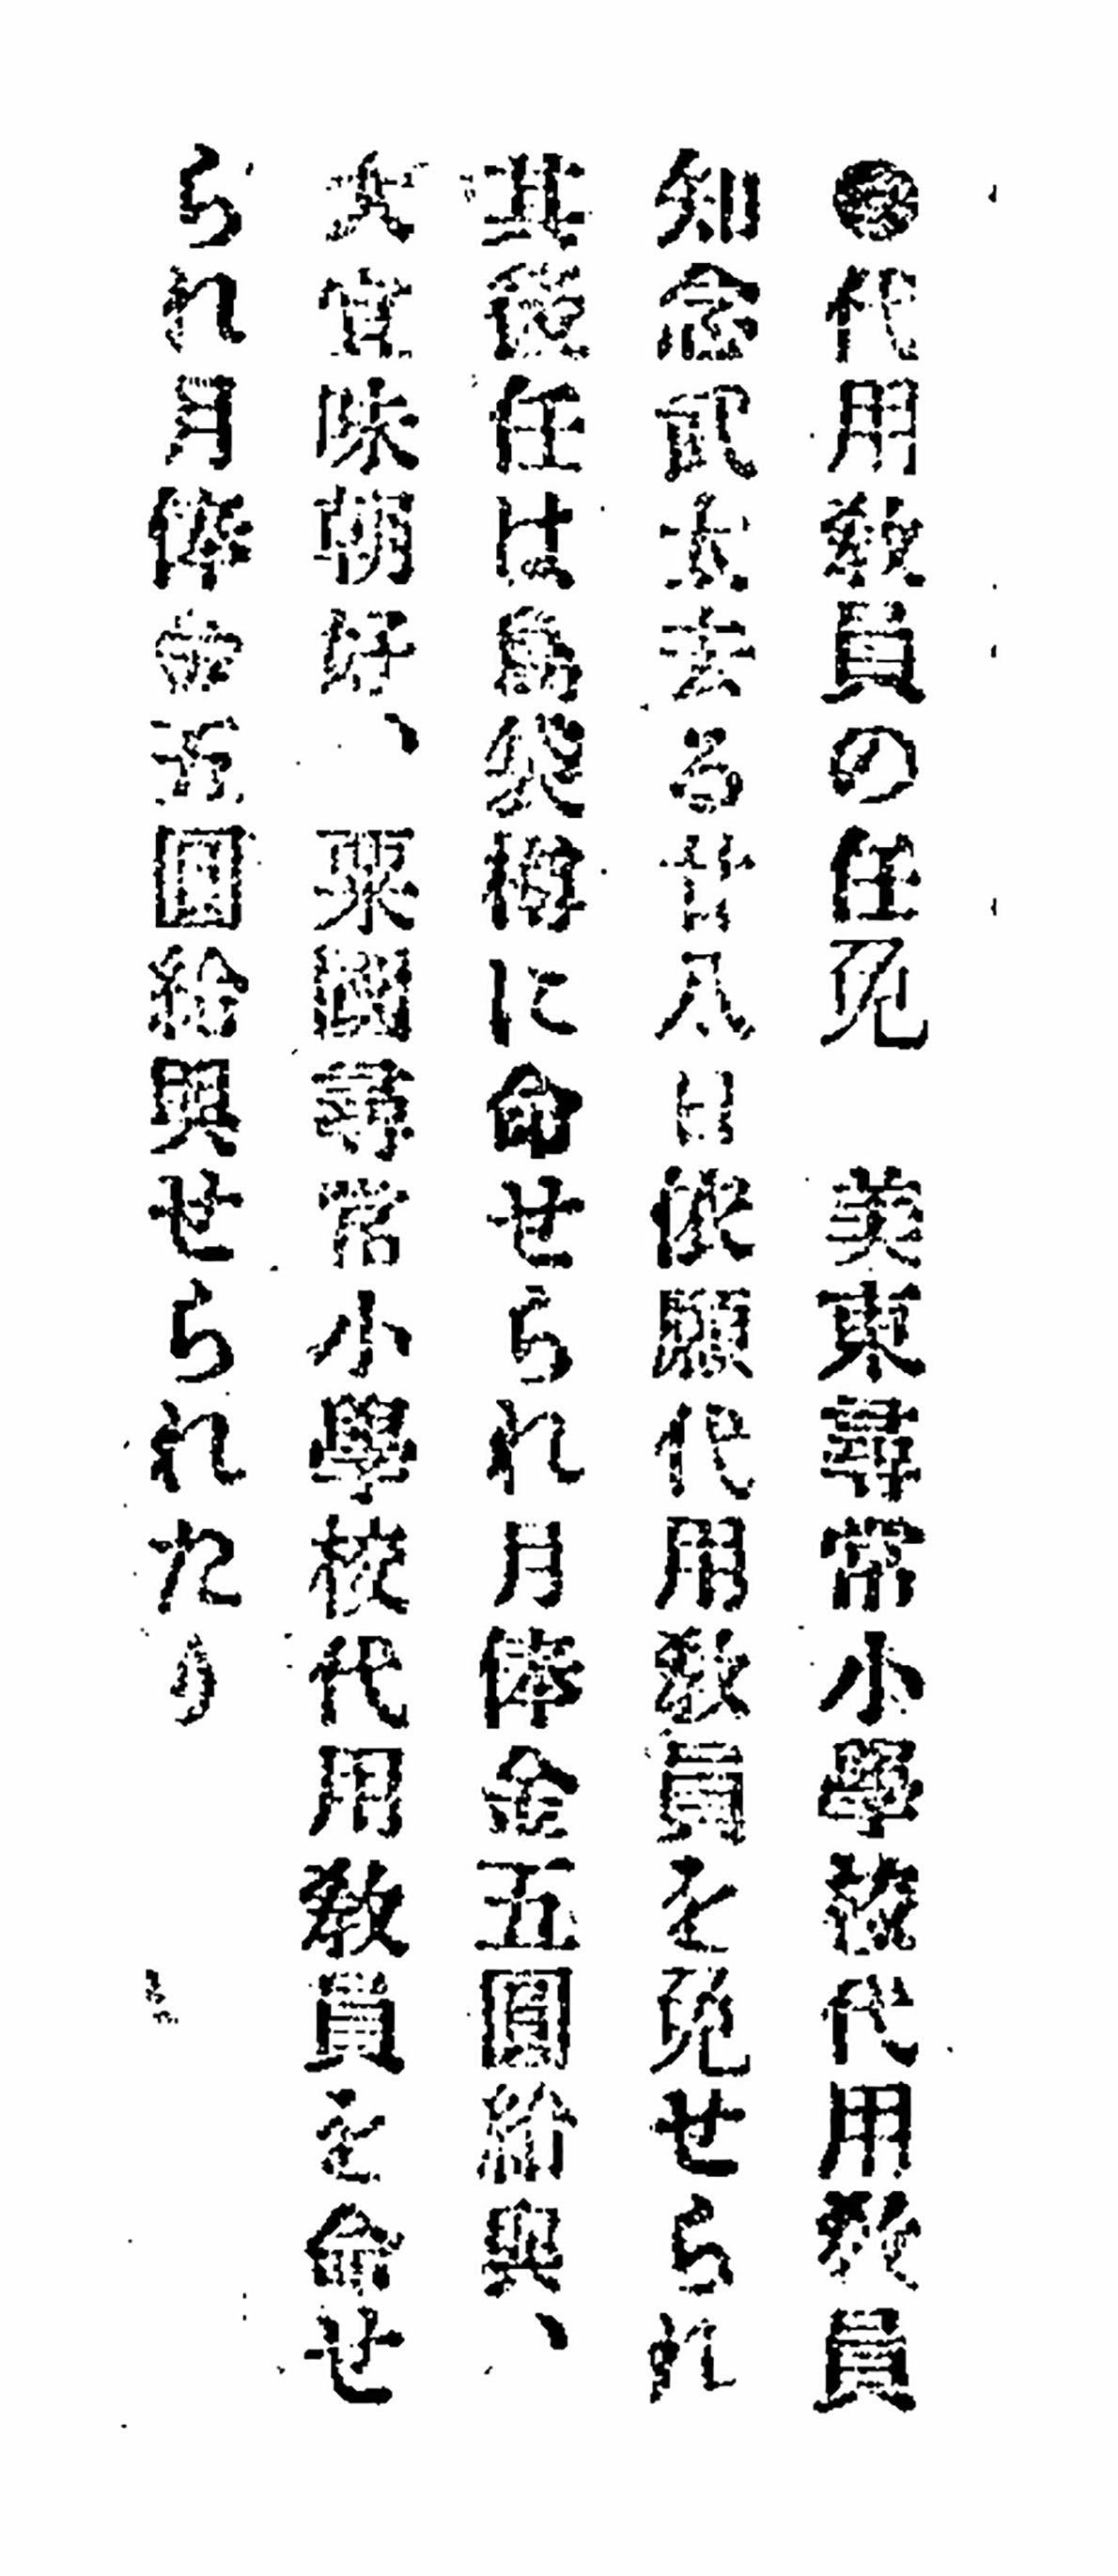 ●代用敎員の任免　美東尋常小學校代用敎員
知念武太去る廿八日依願代用敎員を免せられ
其後任は島袋樽に命せられ月俸金五圓給與、
大宜味朝好、粟國尋常小學校代用敎員を命せ
られ月俸金五圓給與せられたり